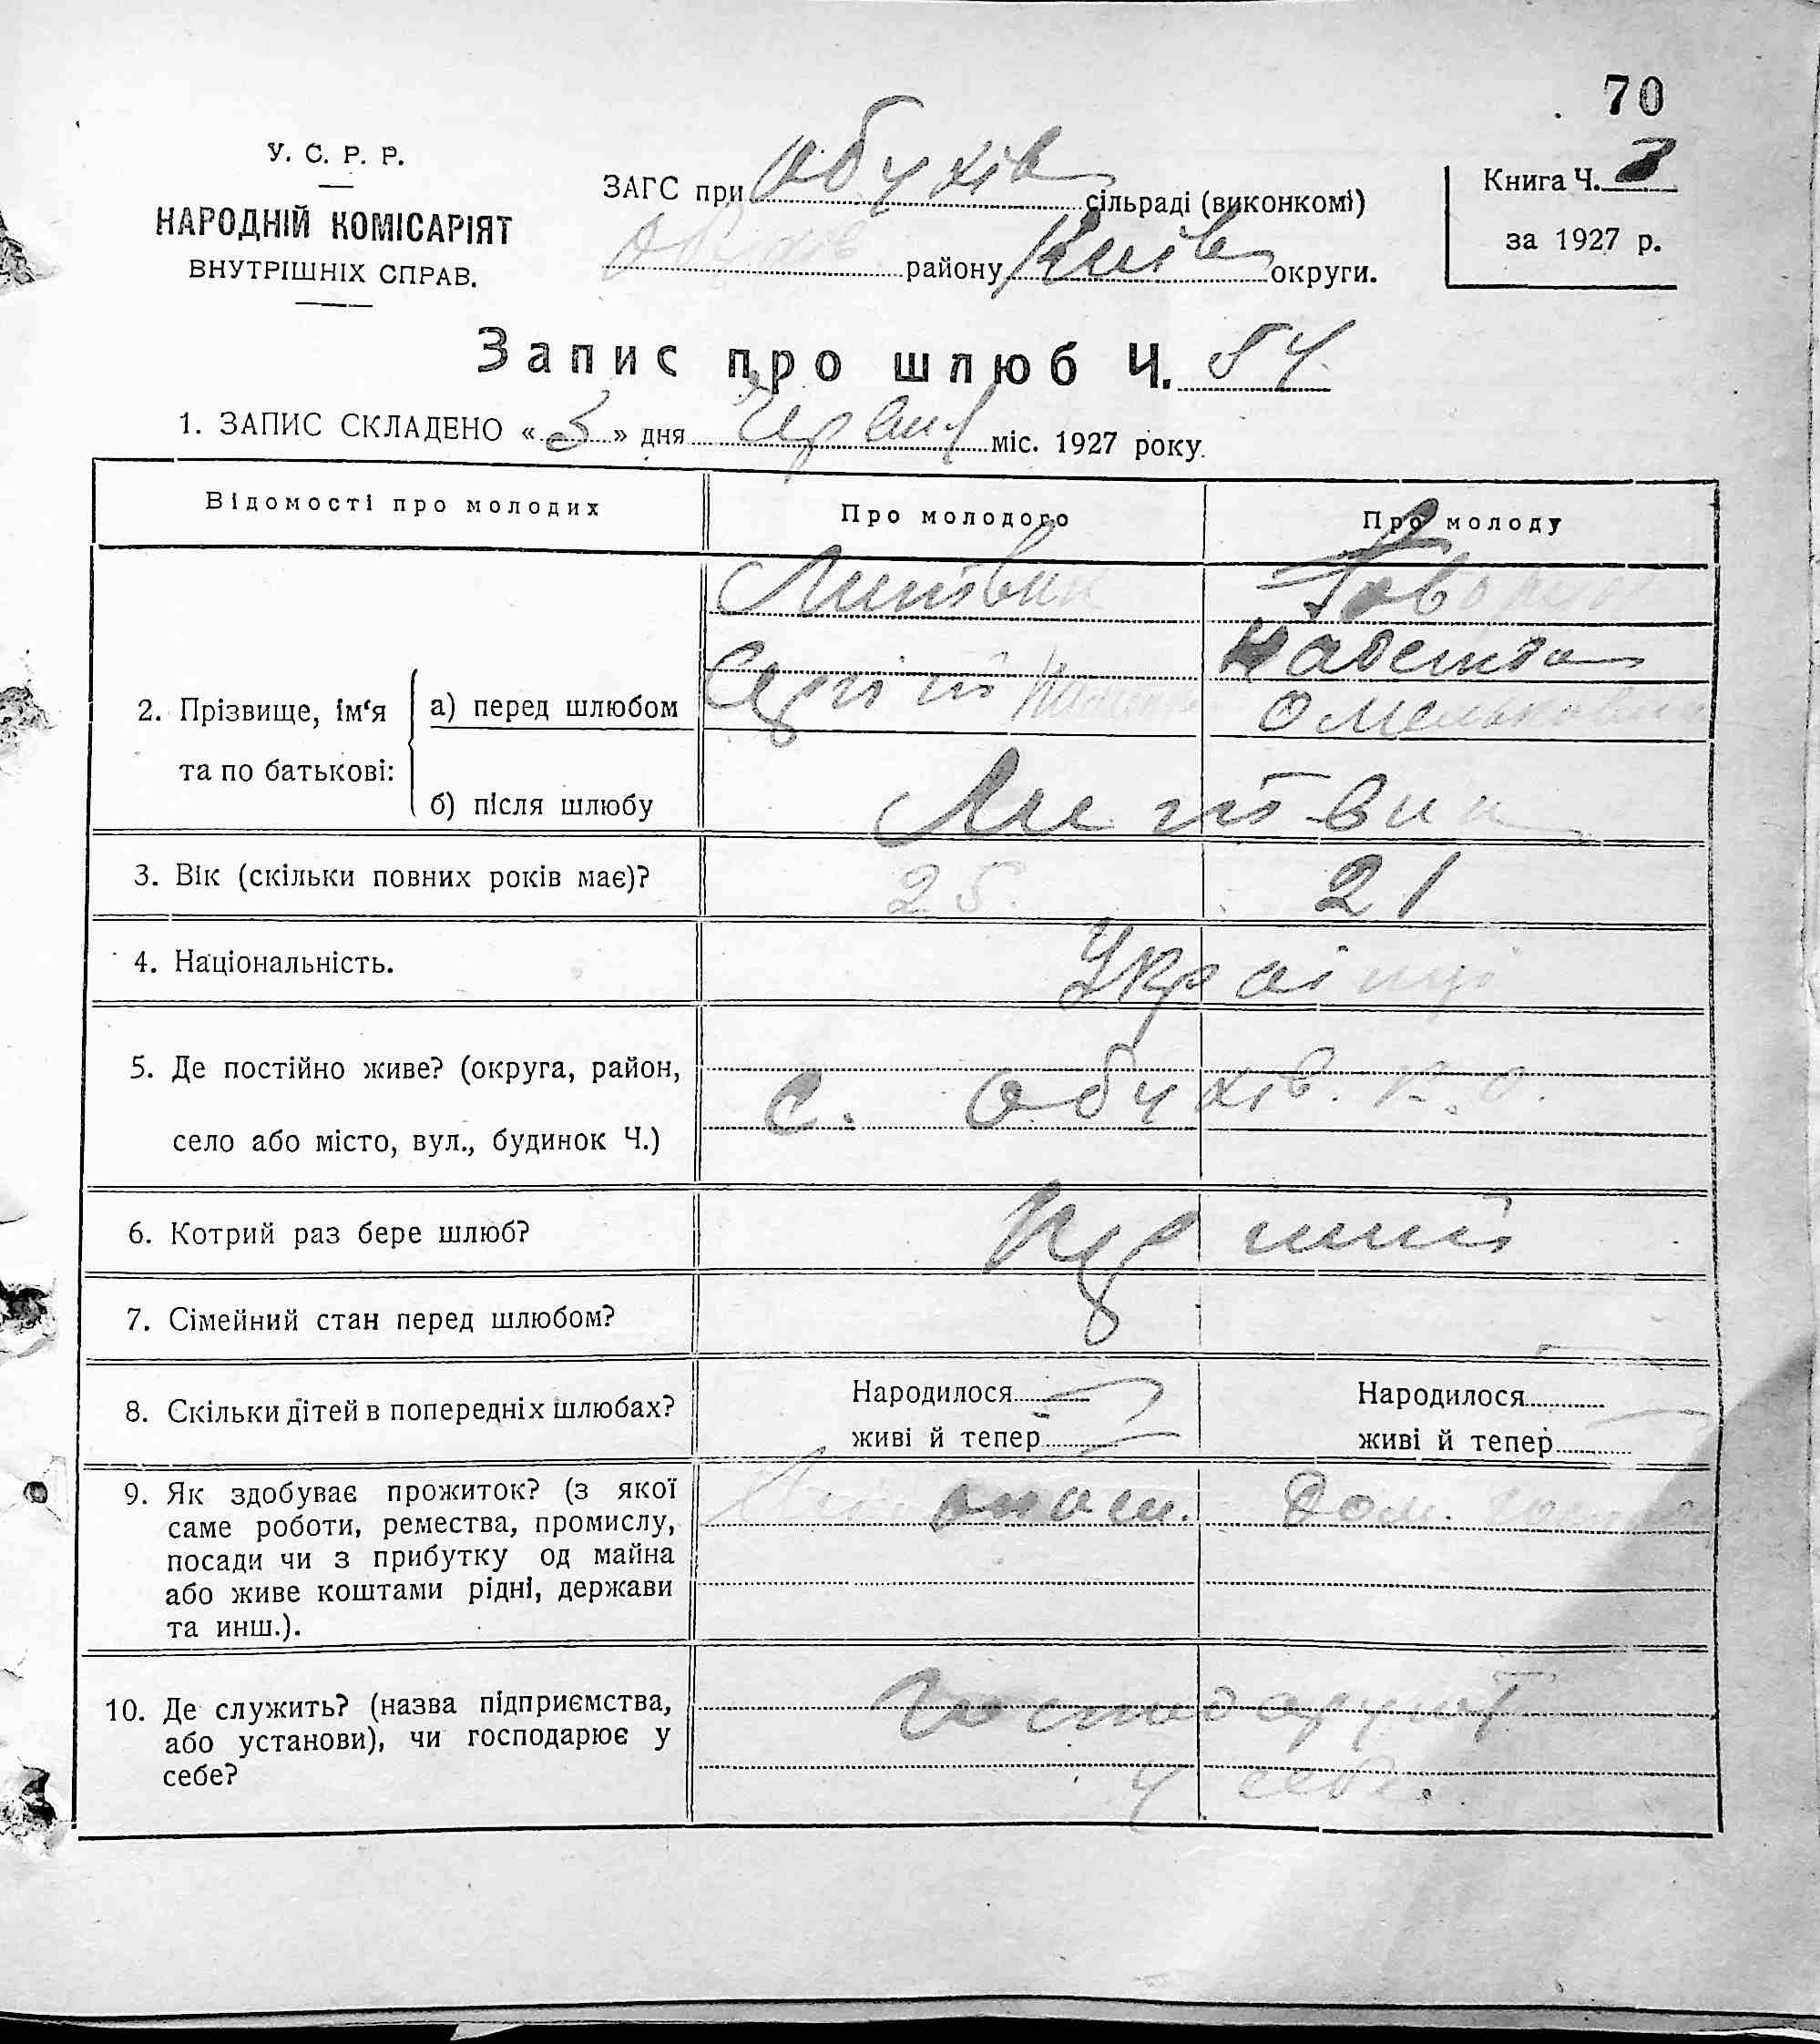 70
У. С. Р. Р.
НАРОДНІЙ КОМІСАРІЯТ
ВНУТРІШНІХ СПРАВ.
ЗАГС при Обухів сільраді (виконкомі)
Обухів району Київ округи.
Книга Ч.
за 1927 р.
Запис про шлюб Ч. 54
1. ЗАПИС СКЛАДЕНО «3» дня Червня міс. 1927 року.
Відомості про молодих
Про молодого
Про молоду
2. Прізвище, ім‘я та по батькові:
а) перед шлюбом
Литвин
Сергій
Омельковна
б) після шлюбу
Литвин
3. Вік (скільки повних років має)?
25.
21
4. Національність.
Українці
5. Де постійно живе? (округа, район,
село або місто, вул., будинок Ч.)
с. Обухів. К. О.
6. Котрий раз бере шлюб?
Перший
7. Сімейний стан перед шлюбом?
8. Скільки дітей в попередніх шлюбах?
Народилося
живі й тепер
Народилося
живі й тепер
9. Як здобуває прожиток? (з якої
саме роботи, ремества, промислу,
посади чи з прибутку од майна
або живе коштами рідні, держави
та инш.).
Дом.
10. Де служить? (назва підприємства,
або установи), чи господарює у
себе?
Господарують
у себе.